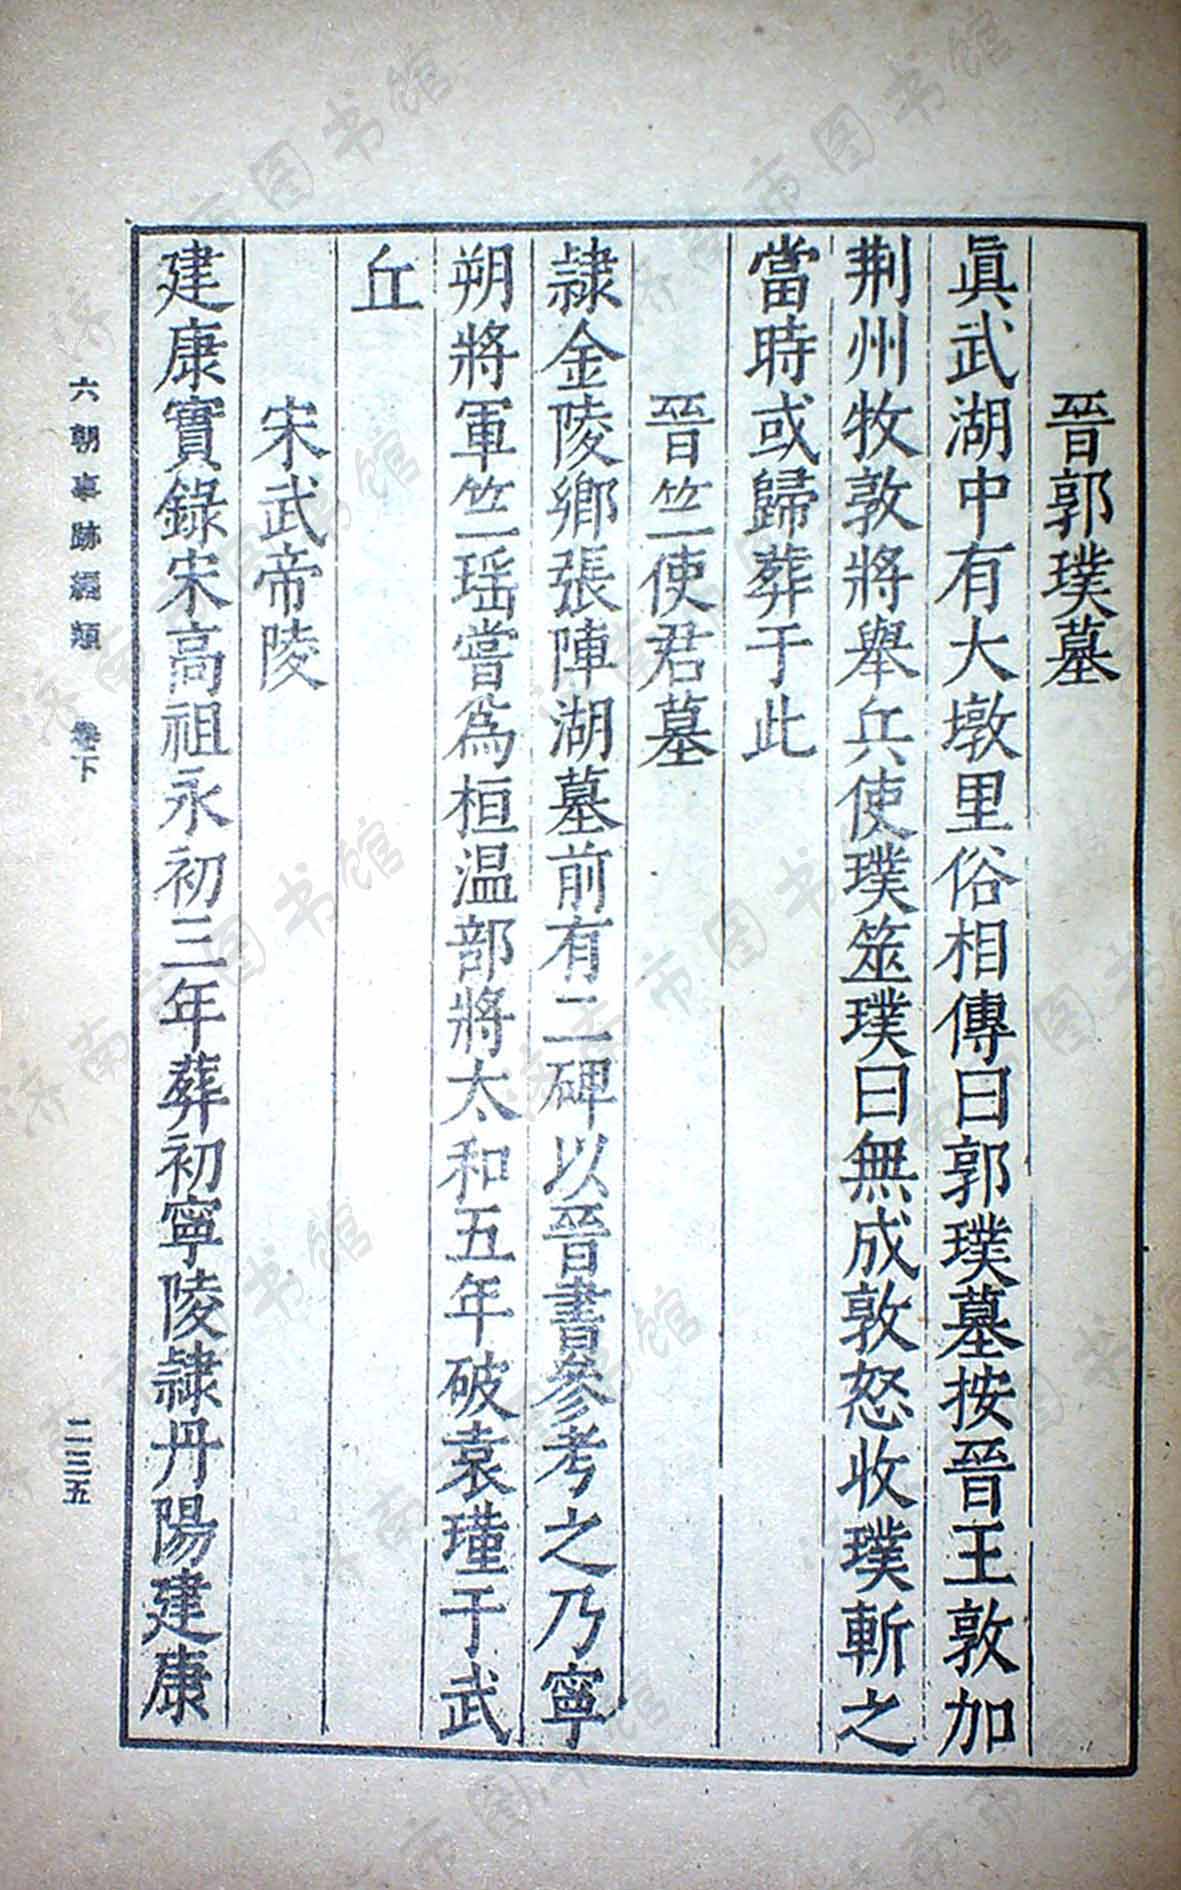 晉郭璞墓
眞武湖中有大墩里俗相傳曰郭璞墓按晉王敦加
荆州牧敦將舉兵使璞筮璞曰無成敦怒收璞斬之
當時或歸葬于此
晉竺使君墓
隷金陵鄉張陣湖墓前有二碑以晉書參考之乃寧
朔將軍竺瑶嘗爲桓温部將太和五年破袁瑾于武
丘
宋武帝陵
建康實錄宋高祖永初三年葬初寧陵隷丹陽建康
六朝事跡編類 卷下 二三五
济南市图书馆